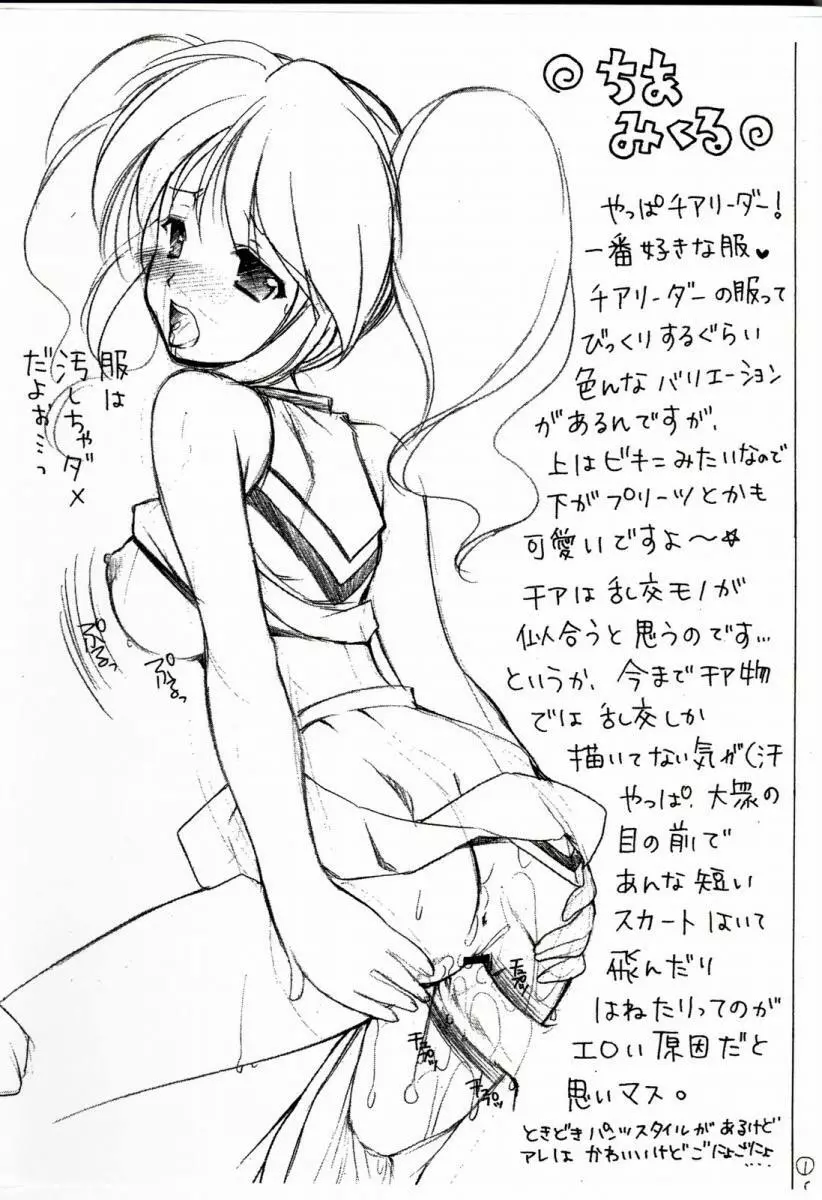 ちあ
みくる
やっぱチアリーダー!
一番好きな服♥
チアリーダーの服って
びっくりするぐらい
色んなバリエーション
があるんですが、
上はビキニみたいなので
下がプリーツとかも
可愛いですよ〜☆
チアは乱交モノが
似合うと思うのです…
というか、今までチア物
では乱交しか
描いてない気が(汗
やっぱ、大衆の
目の前で
あんな短い
スカートはいて
飛んだり
はねたりってのが
エロい原因だと
思いマス。
ときどきパンツスタイルがあるけど
アレはかわいいけどごにょごにょ
…
服は
汚しちゃダメ
だよぉ…っ
ぷるっ
ぷるっ
チュプッ
チュプッ
チュプッ
1